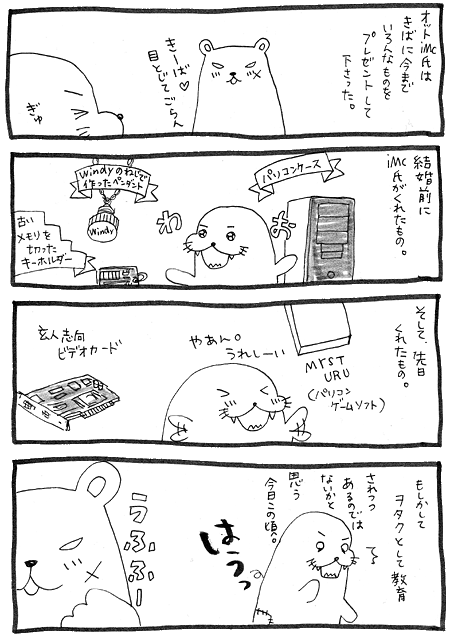 オットiMC氏は
きばに今まで
いろんなものを
プレゼントして
下さった。
きーば♡
目とじてごらん
ぎゅ
結婚前に
iMC氏がくれたもの。
パソコンケース
Windyのねじで
作ったペンダント
Windy
古い
メモリを
切った
キーホルダー
わ
き
そして、先日
くれたもの。
MYST
URU
(パソコン
ゲームソフト)
やあん。
うれしーい
玄人志向
ビデオカード
もしかして
ヲタクとして教育
されつつ
あるのでは
ないかと
思う
今日この頃。
はうっ
うふふふー